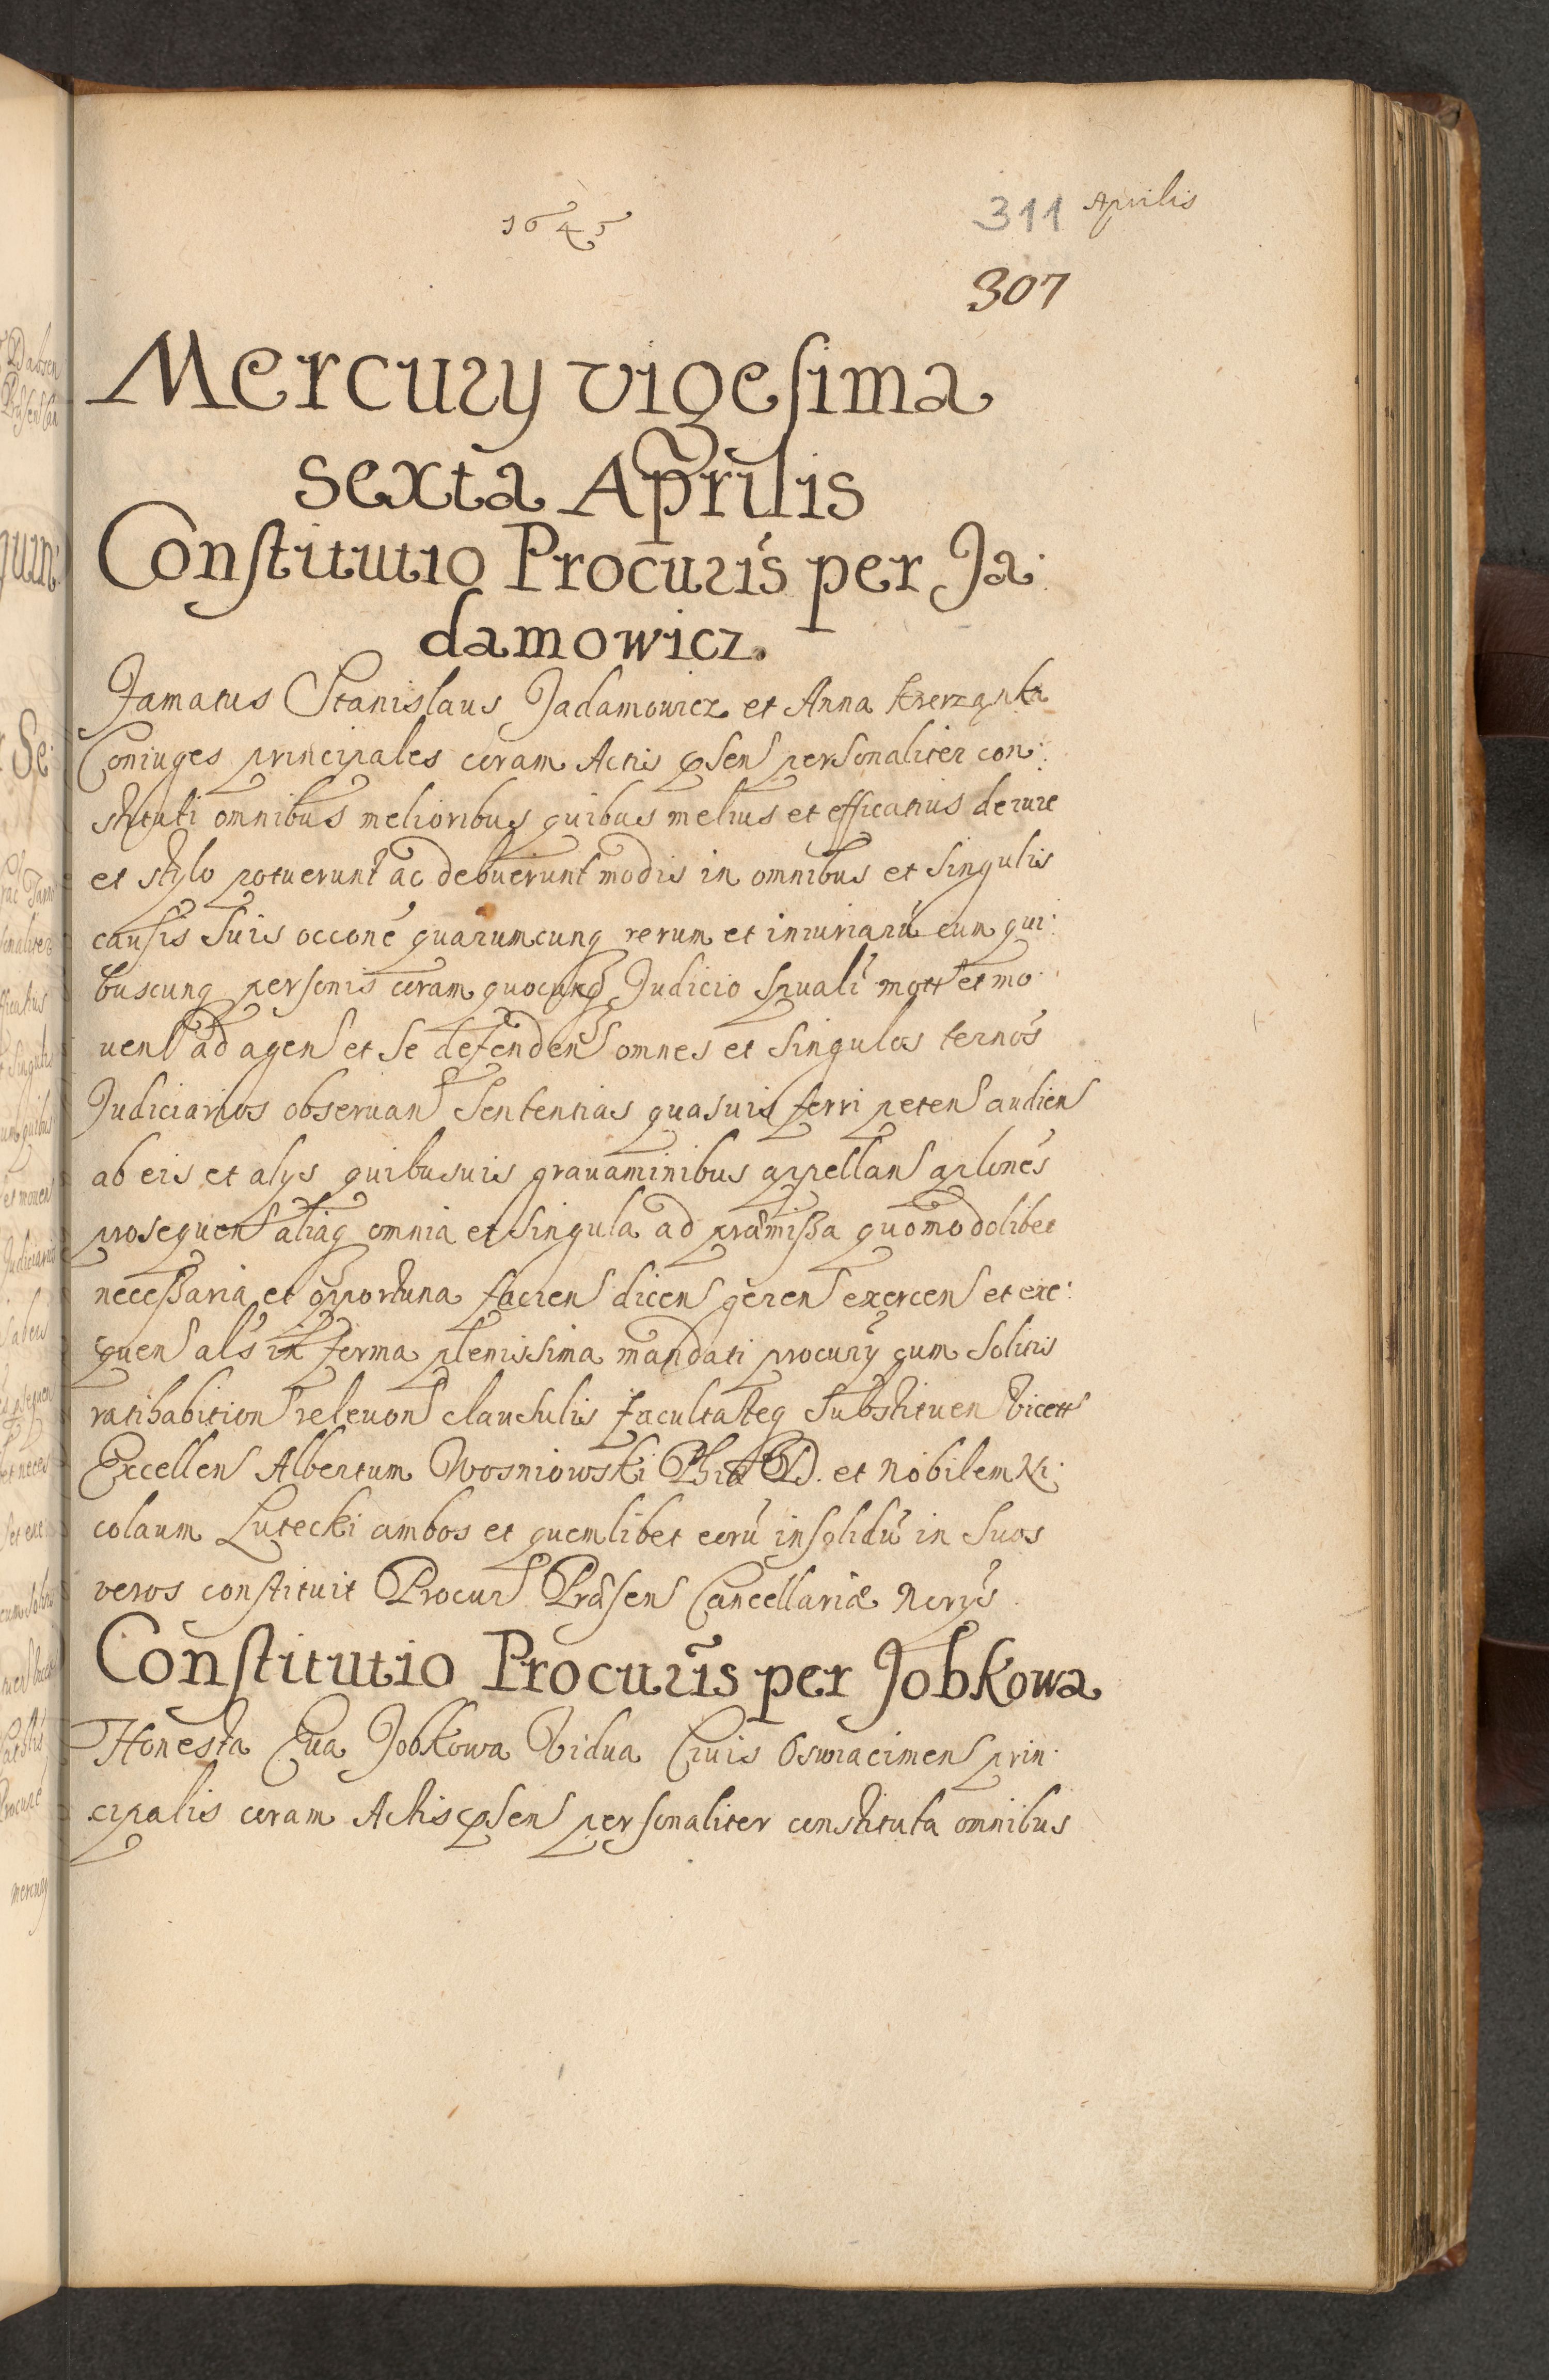 1645
311 Aprilis
307
Mercury vigesima
sexta Aprilis
Constitutio Procuris per Ja:
damowicz.
Famatus Stanislaus Jadamowicz et Anna
Coniuges principales coram Actis psen personaliter con:
stituti omnibus melioribus quibus melius et efficatius de iure
et stylo potuerunt ac debuerunt modis in omnibus et singulis
causis suis occone quarumcunq rerum et iniuriarū cum qui:
buscunq personis coram quocunq Judicio spuali mott et mo:
uen ad agen et se defenden omnes et singulos ternos
Judiciarios obseruan Sententias quasuis ferri peten audien
ab eis et alys quibusuis grauaminibus appellan aplones
prosequen aliaq omnia et singula ad præmissa quomodolibet
necessaria et opportuna facien dicen geren exercen et exe:
quen als in forma plenissima mandati procury cum solitis
ratihabition releuon clausulis facultateq substituen vicett
Excellen Albertum Wosniowski Phiæ D. et Nobilem Ni:
colaum Lutecki ambos et quemlibet eorū insolidū in suos
veros constituit Procur Præsen Cancellariæ Norys
Constitutio Procuris per Jobkowa
Honesta Eua Jobkowa Vidua Ciuis Oswiacimen prin:
cipalis coram Actis psen personaliter constituta omnibus